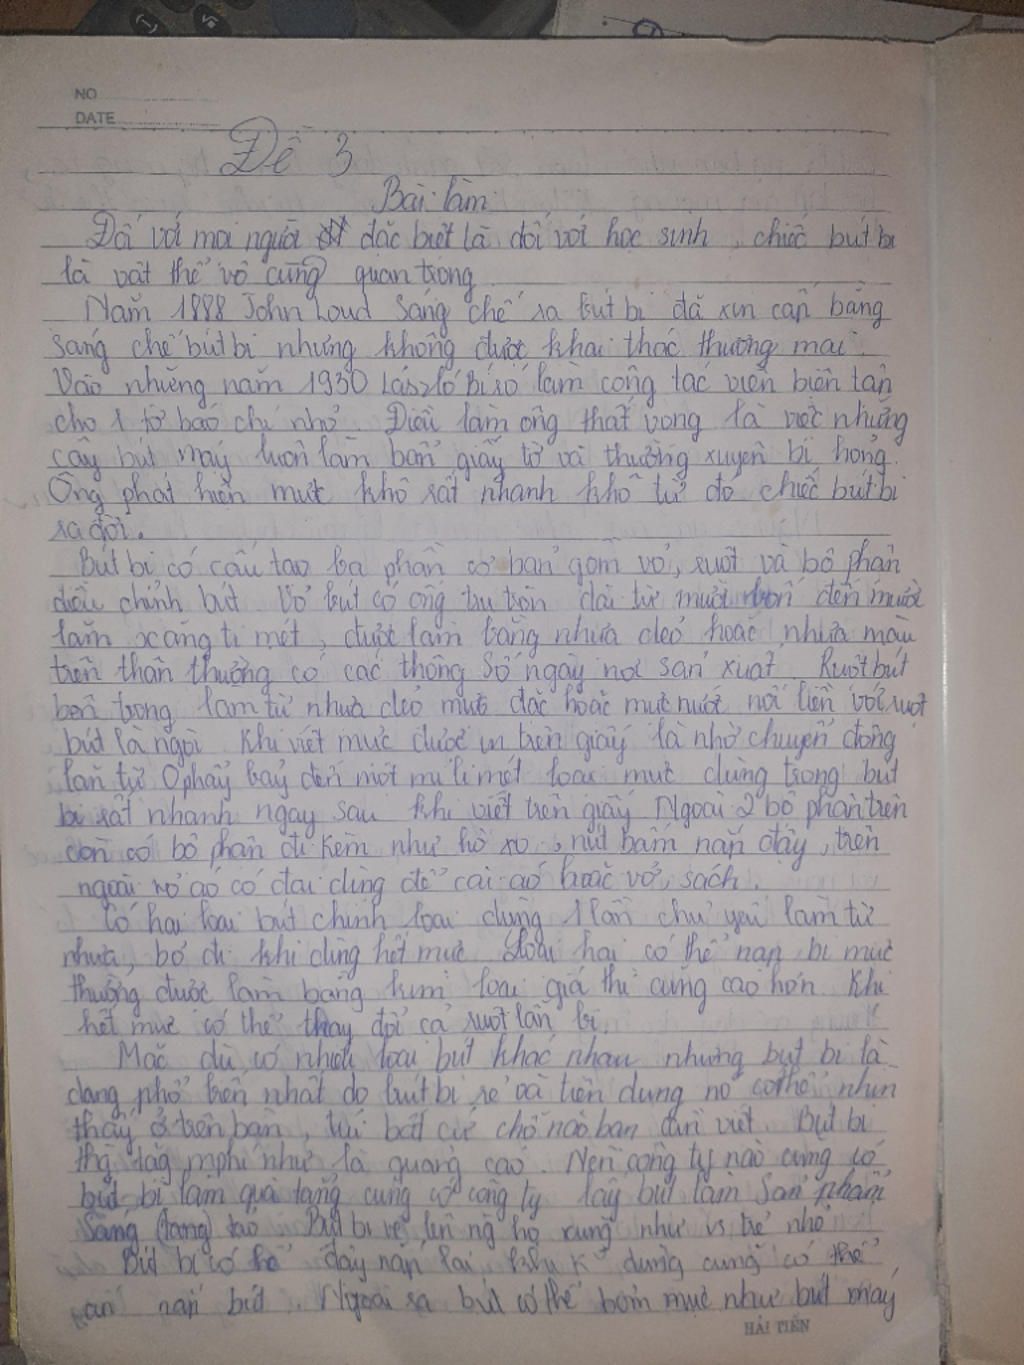 NO
DATE
Đề 3
Bài làm
Đối với mọi người đặc biệt là đối với học sinh, chiếc bút bi
là vật thể vô cùng quan trọng
Năm 1888 John Loud sáng chế ra bút bi đã xin cấp bằng
sáng chế bút bi nhưng không được khai thác thương mại.
Vào những năm 1930 László Bíró làm công tác viên biên tân
cho 1 tờ báo chí nhỏ. Điều làm ông thất vọng là việc những
cây bút máy luôn làm bẩn giấy tờ và thường xuyên bị hỏng.
Ông phát hiện mực khô rất nhanh khô từ đó chiếc bút bi
ra đời.
Bút bi có cấu tạo ba phần cơ bản gồm vỏ, ruột và bộ phận
điều chỉnh bút Vỏ bút có ống trụ tròn dài từ mười bốn đến mười
lăm xăng ti mét, được làm bằng nhựa dẻo hoặc nhựa màu
trên thân thường có các thông số ngày nơi sản xuất Ruột bút
bên trong làm từ nhựa dẻo mực đặc hoặc mực nước nối liền với ruột
bút là ngòi Khi viết mực được in trên giấy là nhờ chuyển động
lăn từ 0 phẩy bảy đến một mi li mét loại mực dùng trong bút
bi rất nhanh ngay sau khi viết trên giấy Ngoài 2 bộ phận trên
còn có bộ phận đi kèm như lò xo, nút bấm nắp đậy, trên
ngoài vỏ có đai dùng để cài áo hoặc vở, sách.
Có hai loại bút chính loại dùng 1 lần chủ yếu làm từ
nhựa, bỏ đi khi dùng hết mực Loại hai có thể nạp bi mực
thường được làm bằng kim loại giá thì cũng cao hơn Khi
hết mực có thể thay đổi cả ruột lẫn bi.
Mặc dù có nhiều loại bút khác nhau nhưng bút bi là
dạng phổ biến nhất do bút bi rẻ và tiện dụng nó có thể nhìn
thấy ở trên bàn, túi bất cứ chỗ nào bạn cần viết Bút bi
tặg mphí như là quảng cáo. Nên công ty nào cũng có
bút bi làm quà tặng cũng có công ty lấy bút làm sản phẩm
sáng (táng) tạo Bút bi vẽ lên ng họ xung như vs trẻ nhỏ
Bút bi có đậy nắp lại khi k dùng cũng có thể
nắp bút. Ngoài ra bút có thể bơm mực như bút máy
HẢI TIẾN